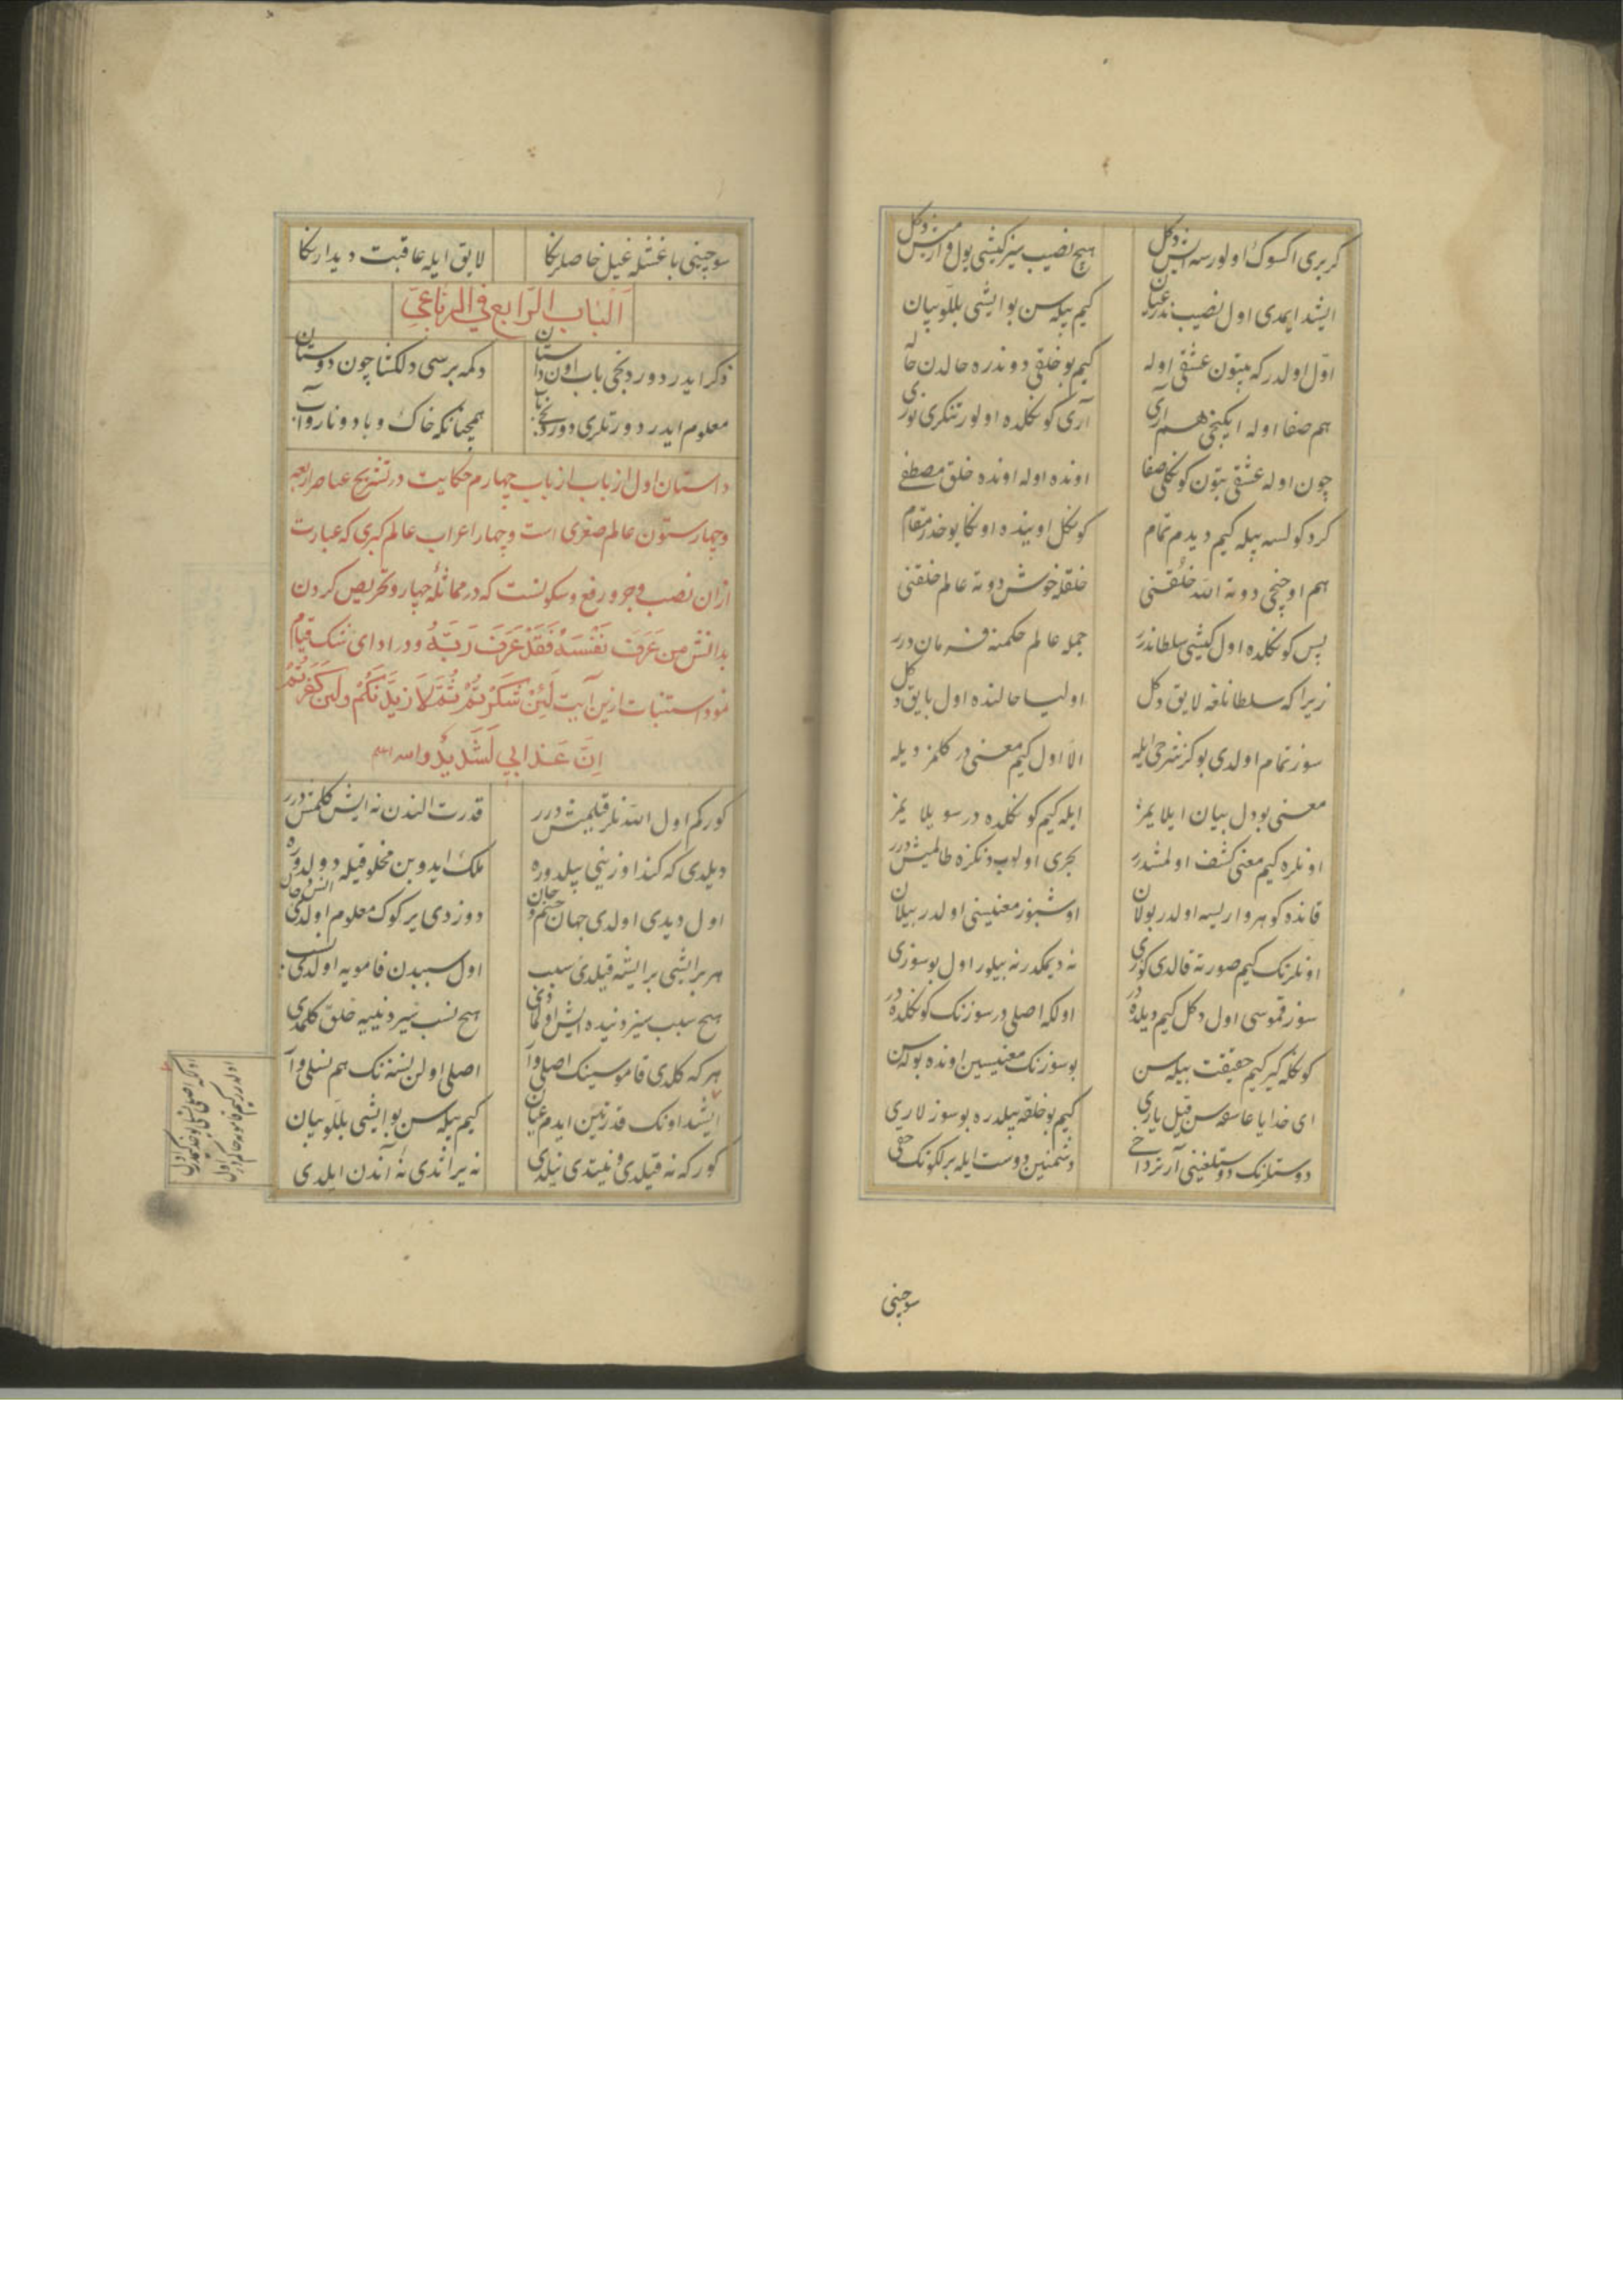 كر برى اكسوك اولورسه ايش دكل هيچ نصيب سيز كيشى يول وارمش دكل
ايشد ايمدى اول نصيب ندر عيان كيم بيله سن بو ايشى بللو بيان
اوّل اولدر كه بتون عشقى اوله كيم بو خلقى دوندره حالدن حاله
هم صفا اوله ايكنجى هم آرى آرى كوكلده اولور تنكرى نورى
چون اوله عشقى بتون كوكلى صفا اونده اوله اونده خلق مصطفى
كرد كولسه بيله كيم ديدم تمام كوكل اوينده اونكا بو خذر مقام
هم اوچنجى دوته الله خُلقنى خلقله خوش دوته عالم خلقنى
پس كوكلده اول كيشى سلطاندر جمله عالم حكمنه فرماندرر
زيرا كه سلطانلغه لايق دكل اوليا حالنده اول بايق دكل
سوز تمام اولدى بو كز شرحى ايله الّا اول كيم معنى در كلمز ديله
معنى بو دل بيان ايلايمز ايله كيم كوكلده در سويلايمز
اونلره كيم معنى كشف اولمشدرر بحرى اولوب دنكزه طالمش درر
قانده كوهر واريسه اولدر بولان اوشبو رمز معنيسنى اولدر بيلان
اونلرنك كيم صورته قالدى كوزى نه ديمكدر نه بيلور اول بو سوزى
سوز قموسى اول دكل كيم ديلده در اولكه اصلى در سوزنك كوكلده در
كوكله كير كيم حقيقت بيله سن بو سوزنك معنيسين اونده بولاسن
اى خدايا عاشقه سن قيل يارى كيم بو خلقه بيلدره بو سوزلارى
دوستلرنك دوستلغينى آرتر داخى دشمنين دوست ايله برلكونك حقى
سوچنى
سوچنى باغشله غيل خاصلرنكا لايق ايله عاقبت ديدارنكا
اَلْبَاب الرّابع في الرباعىّ
ذكر ايدر دوردنجى باب اون داستان دكمه برسى دلكشا چون دوستان
معلوم ايدر دورتلرى دوردنجى باب همچنانكه خاك و باد و نار و آب
داستان اول از باب از باب چهارم حكايت در تشريح عناصر اربعه
و چهار ستون عالم صغرى است و چهار اعراب عالم كبرى كه عبارت
از آن نصب و جر و رفع و سكونست كه در مماثله چهار و تحريص كردن
بدانش من عَرَفَ نَفْسَهُ فَقَدْ عَرَفَ رَبَّهُ و در اداى شكر قيام
نمود استنبات ازين آيت لَئِنْ شَكَرْتُمْ لَاَزيدَنَّكُمْ ولَئِن كَفَرْتُمْ
اِنَّ عَذابي لَشَديدٌ والله اعلم
كوركم اول الله نلر قيلمش درر قدرت الندن نه ايش كلمش درر
ديلدى كه كندا وزينى بيلدوره ملك ايدوبن مخلوقيله دولدوره
اول ديدى اولدى جهان جسم و جان دوزدى ير كوك معلوم اولدى انس و جان
هر بر ايشى بر ايشه قيلدى سبب اول سببدن قامويه اولدى نسب
هيچ سبب سيز دنيده ايش اولمادى هيچ نسب سيز دنييه خلق كلمدى
هر كه كلدى قاموسينك اصلى وار اصلى اولن نسنه نك هم نسلى وار
ايشد اونك قدرتين ايدم عيان كيم بيله سن بو ايشى بللو بيان
كور كه نه قيلدى و نيتدى نيلدى نه يراتدى نه آندن ايلدى